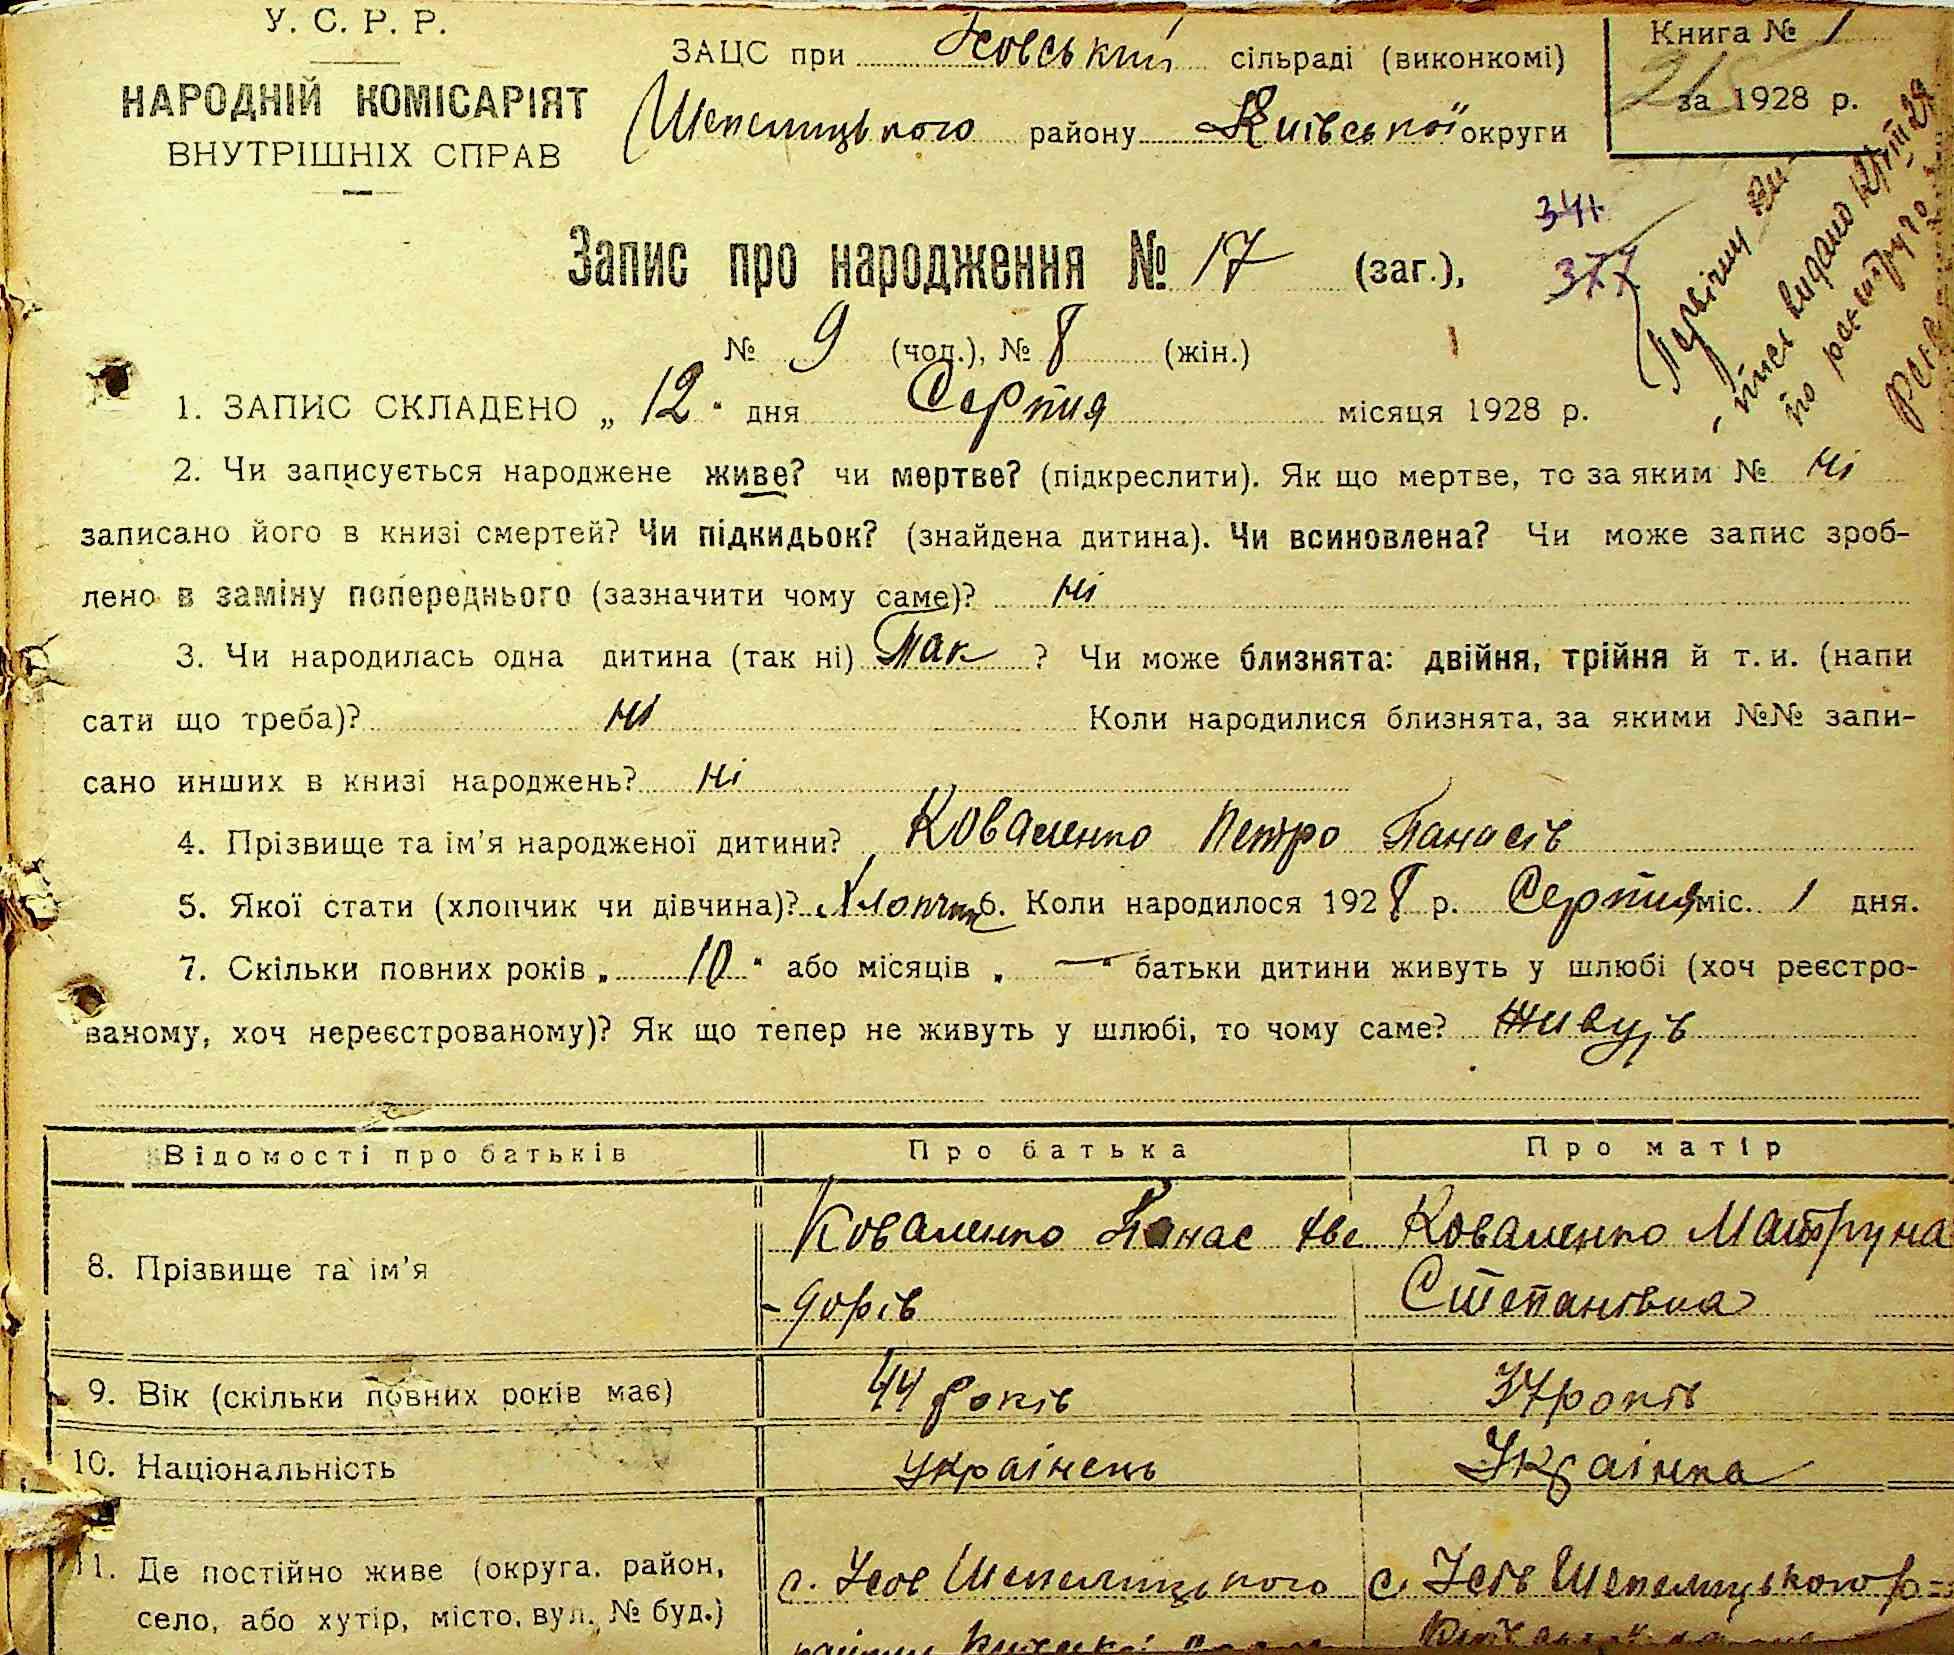 У. С. Р. Р.
НАРОДНІЙ КОМІСАРІЯТ
ВНУТРІШНІХ СПРАВ
ЗАЦС при Усовський сільраді (виконкомі)
Шепелицького району Київської округи
Книга № 1
за 1928 р.
Запис про народження № 17 (заг.),
341
377
№ 9 (чол.), № 8 (жін.)
1. ЗАПИС СКЛАДЕНО „ 12 " дня Серпня місяця 1928 р.
2. Чи записується народжене живе? чи мертве? (підкреслити). Як що мертве, то за яким № ні
записано його в книзі смертей? Чи підкидьок? (знайдена дитина). Чи всиновлена? Чи може запис зроб-
лено в заміну попереднього (зазначити чому саме)? ні
3. Чи народилась одна дитина (так ні) Так ? Чи може близнята: двійня, трійня й т. и. (напи
сати що треба)? ні Коли народилися близнята, за якими №№ запи-
сано инших в книзі народжень? ні
4. Прізвище та ім'я народженої дитини? Коваленко Петро Панасів
5. Якої стати (хлопчик чи дівчина)? Хлопчик 6. Коли народилося 1928 р. Серпня міс. 1 дня.
7. Скільки повних років „ 10 " або місяців „ — " батьки дитини живуть у шлюбі (хоч реєстро-
ваному, хоч нереєстрованому)? Як що тепер не живуть у шлюбі, то чому саме? Живуть
Відомості про батьків Про батька Про матір
8. Прізвище та ім'я
Коваленко Панас Аве
-дорів
Коваленко Матруна
Степанівна
9. Вік (скільки повних років має) 44 років 37 років
10. Національність українець Українка
11. Де постійно живе (округа, район,
село, або хутір, місто, вул., № буд.)
с. Усов Шепелицького
с. Усов Шепелицького р=